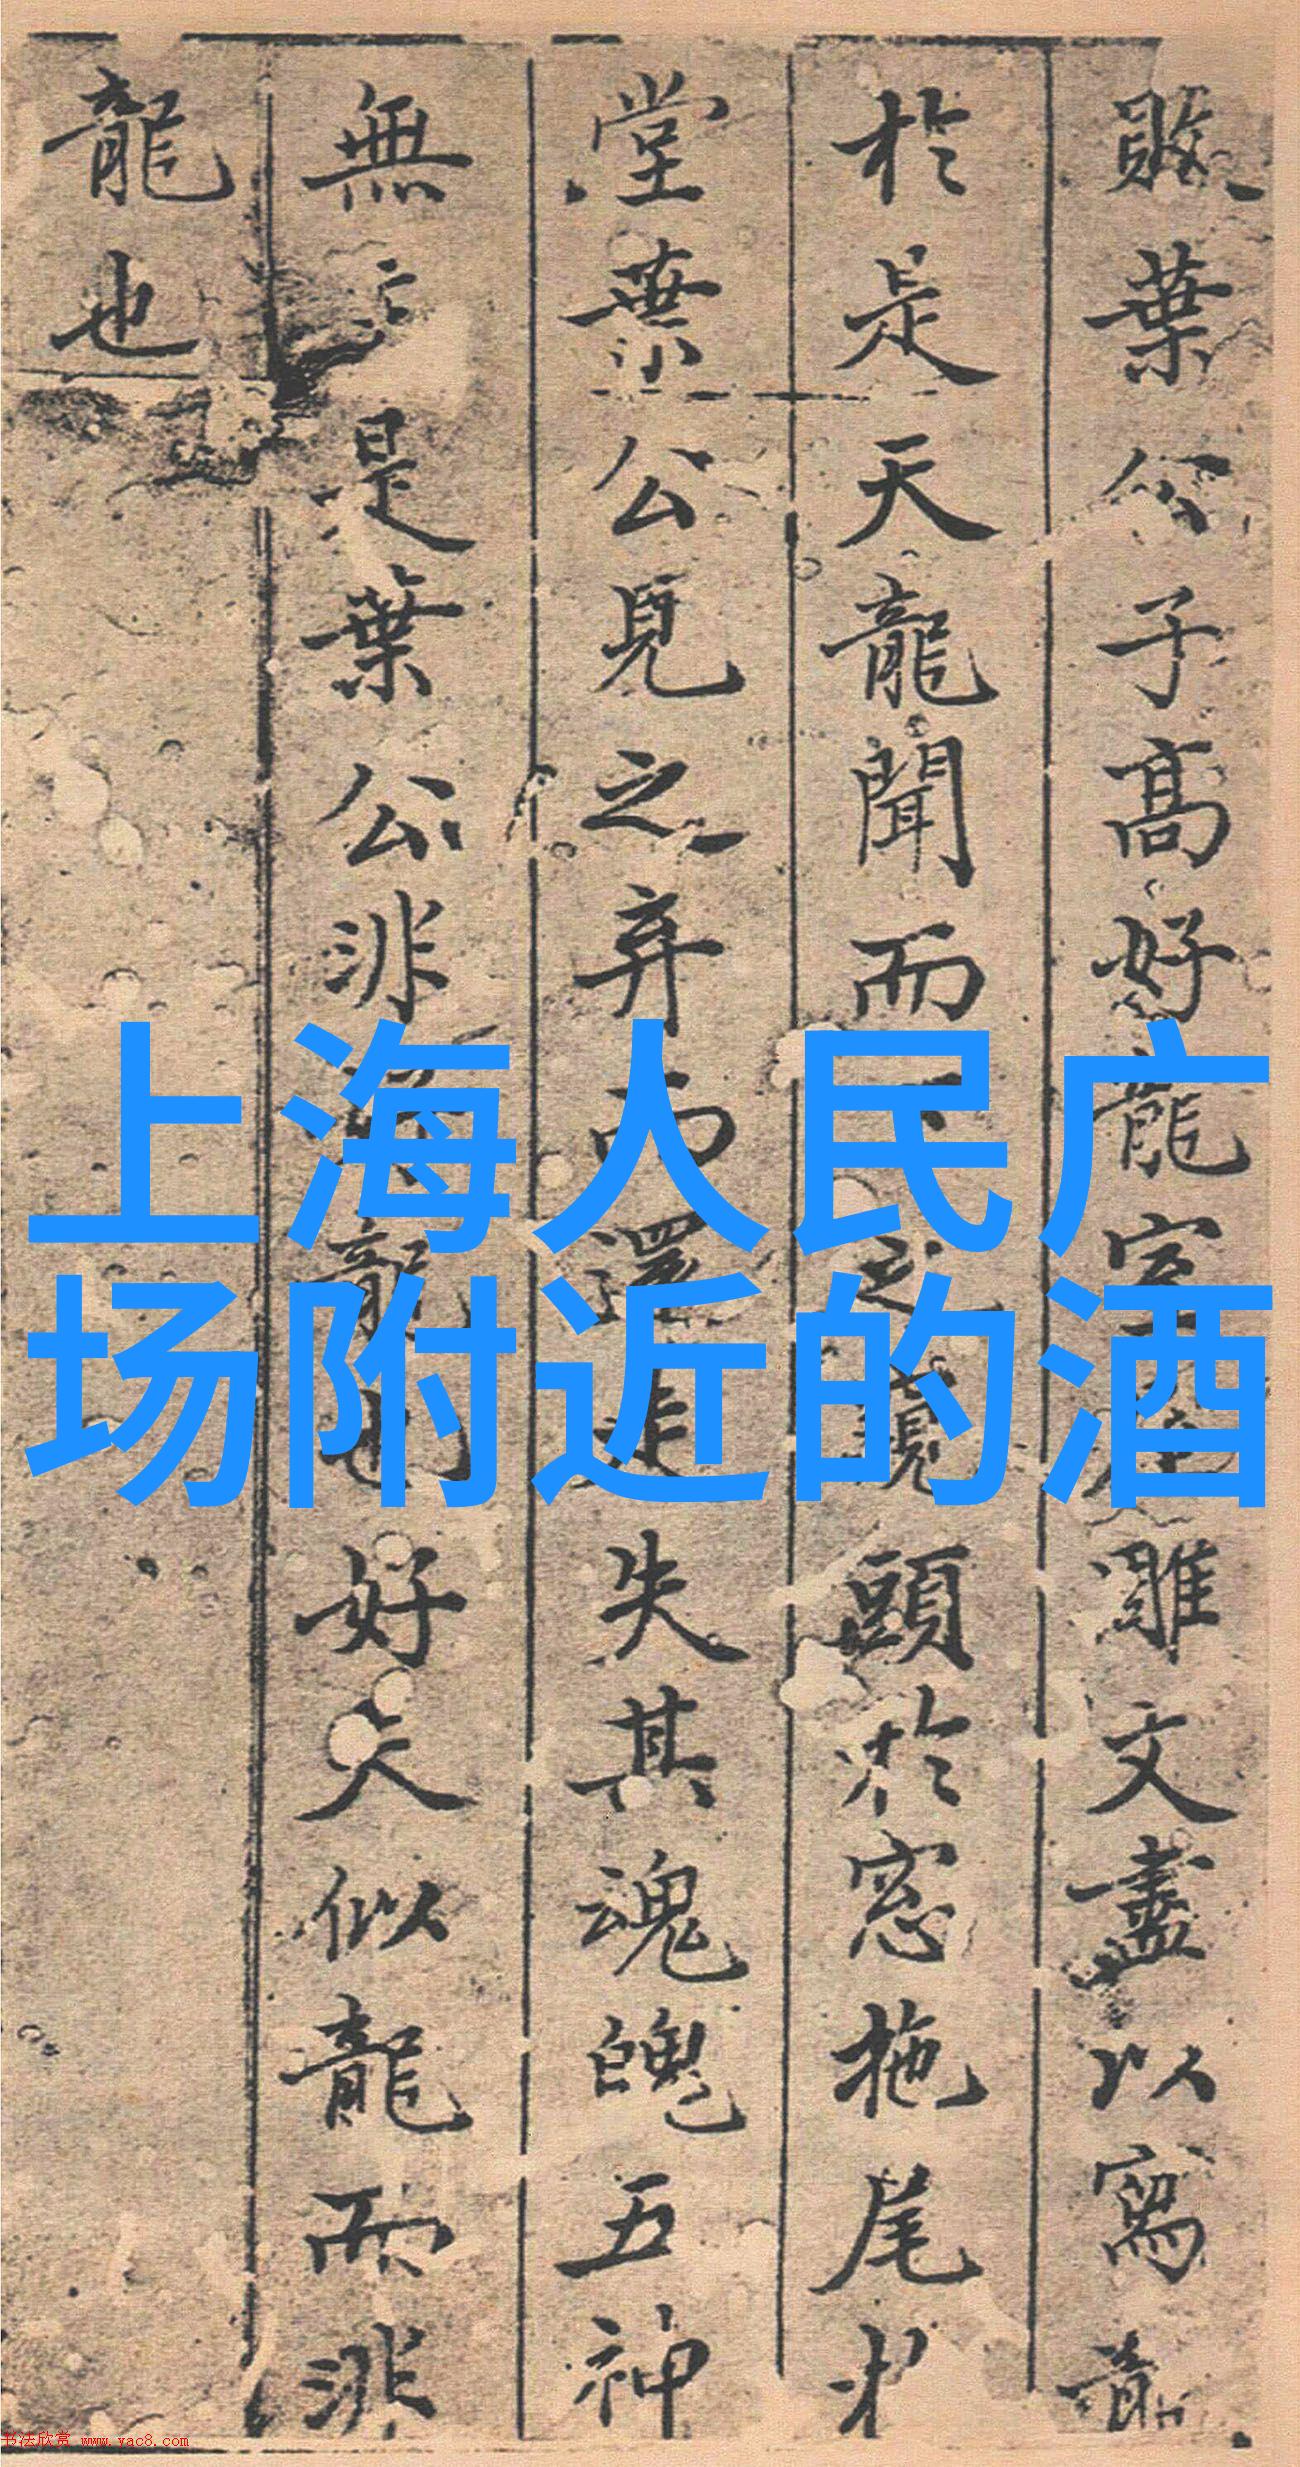 葉公子高好龍室雕文盡以寫龍
於是天龍聞而之窺頭於窓拖尾於
堂葉公見之弃而還走失其魂魄五神
無是葉公非龍也好夫似龍而非
龍也
上海人民广
场附近的酒
书法欣赏 www.yac8.com